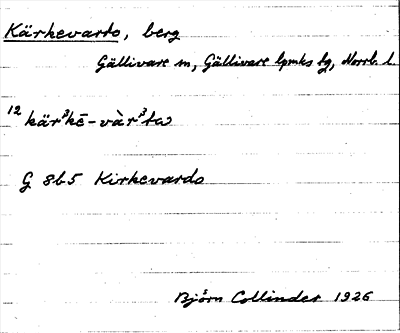 Kärkevarto, berg
Gällivare sn, Gällivare lpmks tg, Norrb. l.
12 kär³kē-vàr³tω
G 8b5 Kirkevardo
Björn Collinder 1926